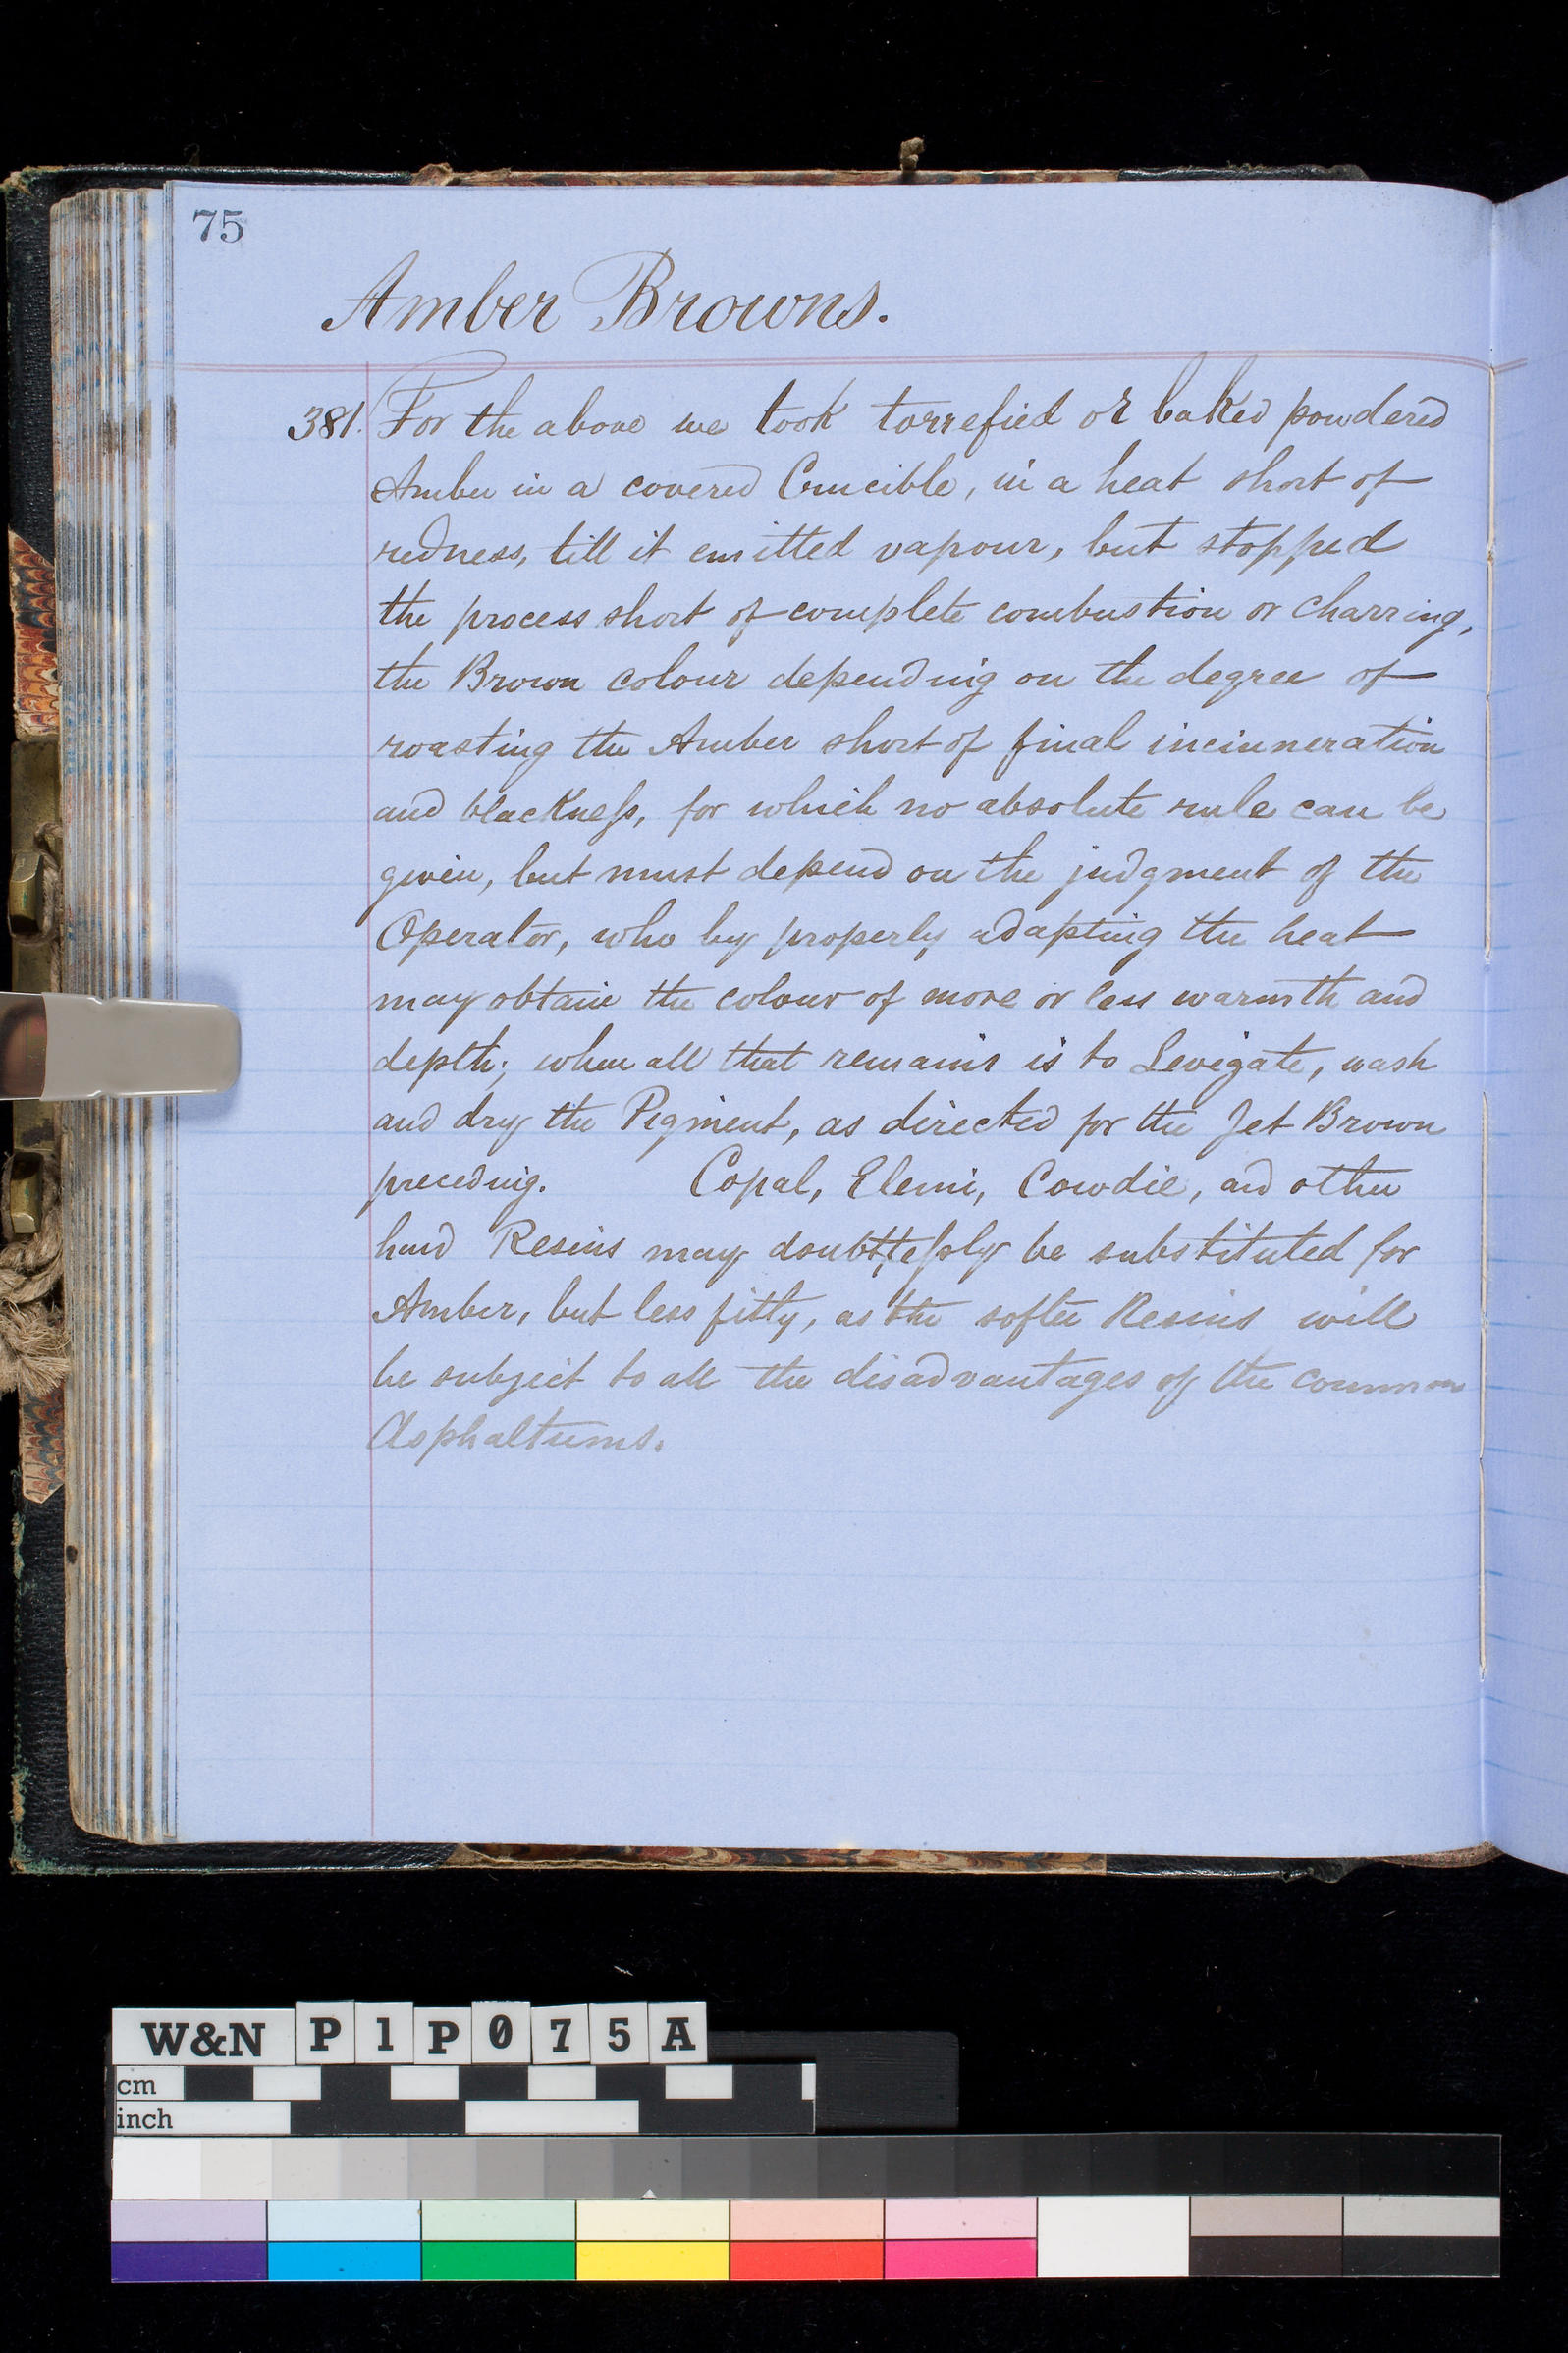 75
Amber Browns.
381. For the above we took torrefied or baked powdered
Amber in a covered Crucible, in a heat short of
redness, till it emitted vapour, but stopped
the process short of complete combustion or charring,
the Brown colour depending on the degree of
roasting the Amber short of final incinneration
and blackneſs, for which no absolute rule can be
given, but must depend on the judgment of the
Operator, who by properly adapting the heat
may obtain the colour of more or less warmth and
depth; when all that remains is to Levigate, wash
and dry the Pigment, as directed for the Jet Brown
preceding. Copal, Elemi, Cowdie, and other
hard Resins may doubtleſsly be substituted for
Amber, but less fitly, as the softer Resins will
be subject to all the disadvantages of the common
Asphaltums.
W&N P1P075A
cm
inch